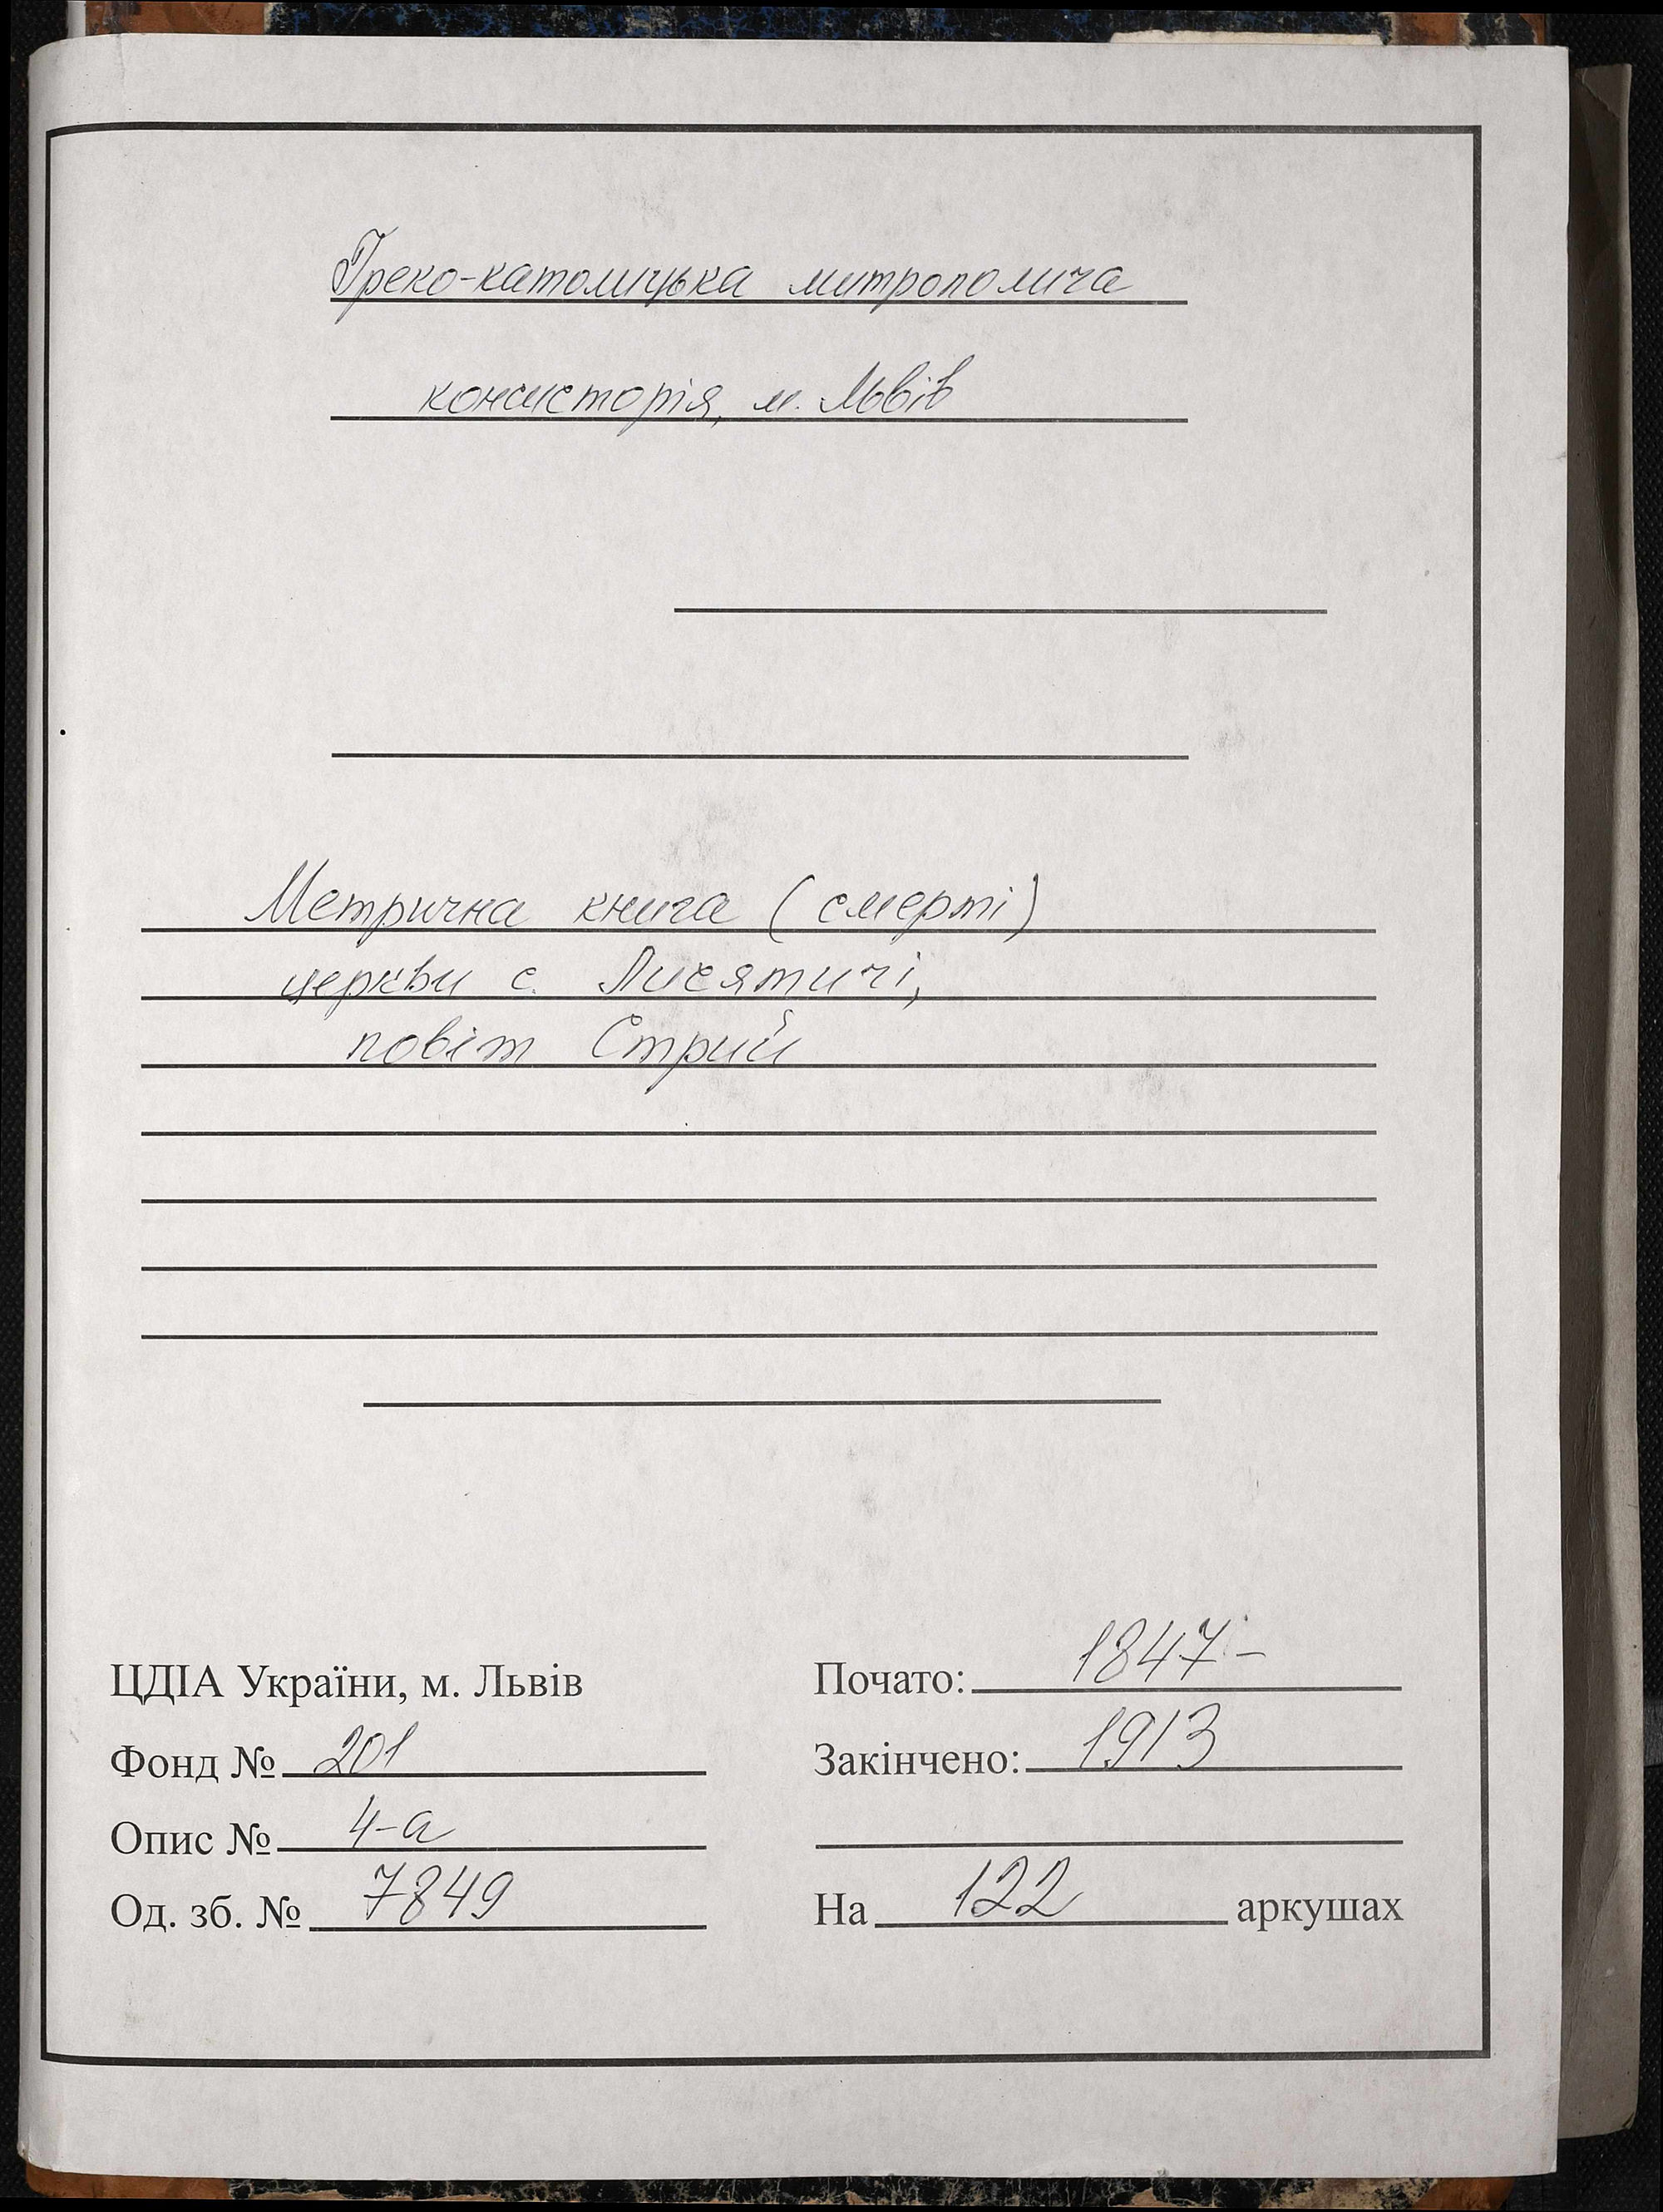 Греко-католицька митрополича
консисторія, м. Львів
Метрична книга (смерті)
церкви с. Лисятичі,
повіт Стрий
ЦДІА України, м. Львів
Фонд № 201
Опис № 4-а
Од. зб. № 7849
Почато: 1847-
Закінчено: 1913
На 122 аркушах